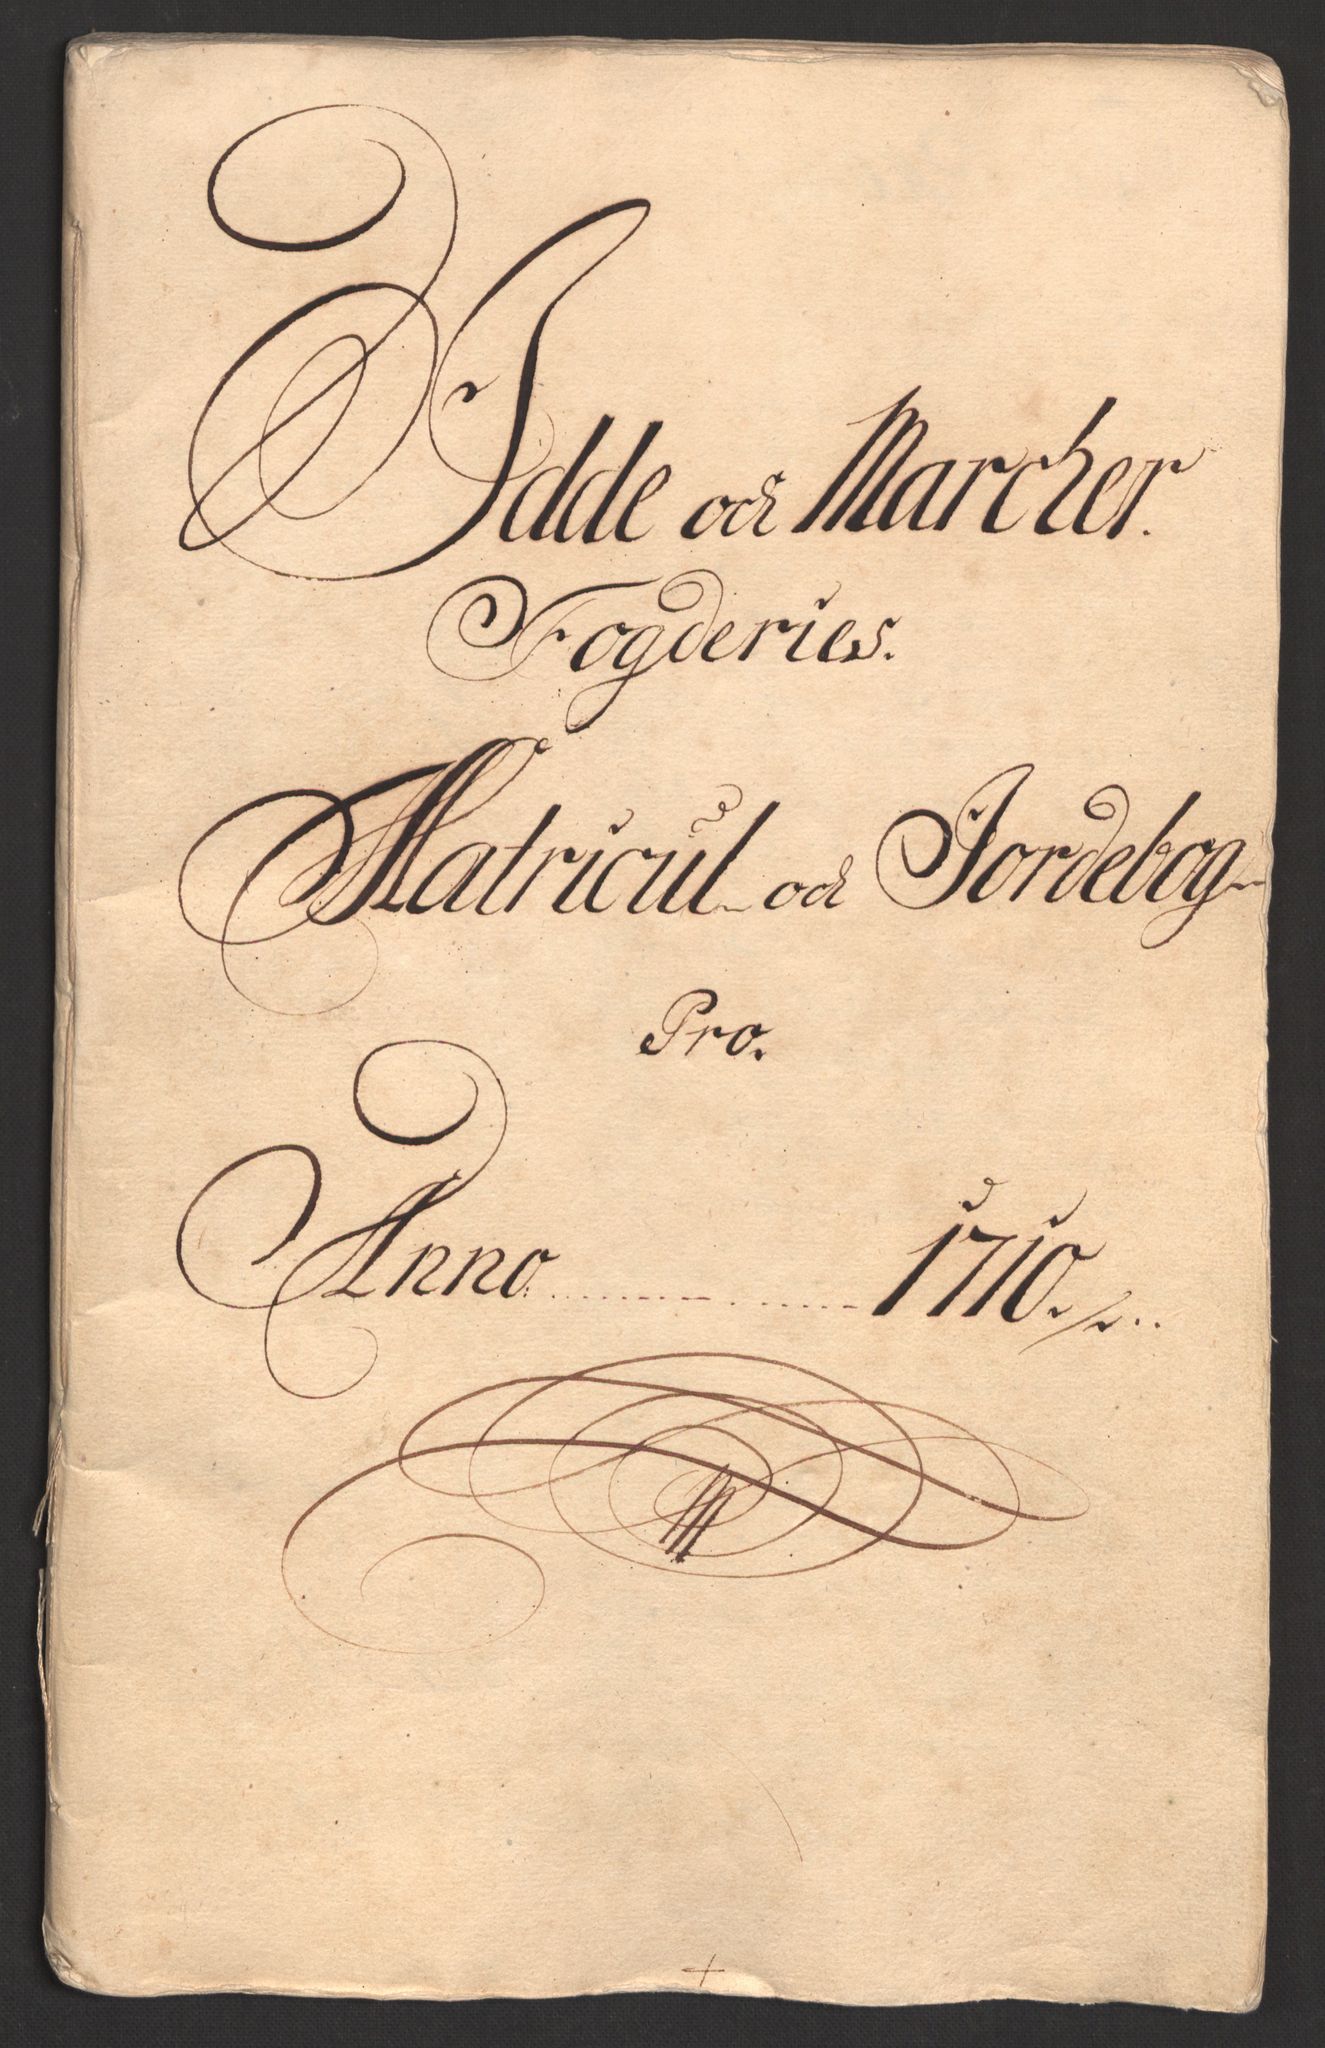 Idde och Marcher.
Fogderies.
Matricul och Jordebog
Pro.
Anno. 1710.